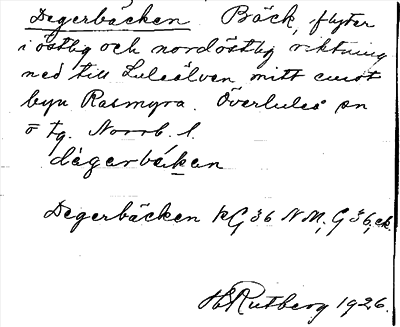 Degerbäcken Bäck, flyter
i östlig och nordöstlig riktning
ned till Luleälven mitt emot
byn Rasmyra. Överluleå sn
ö tg. Norrb. l.
dégerbäkan
Degerbäcken RG 36 NM; G 36, ek.
H Rutberg 1926.